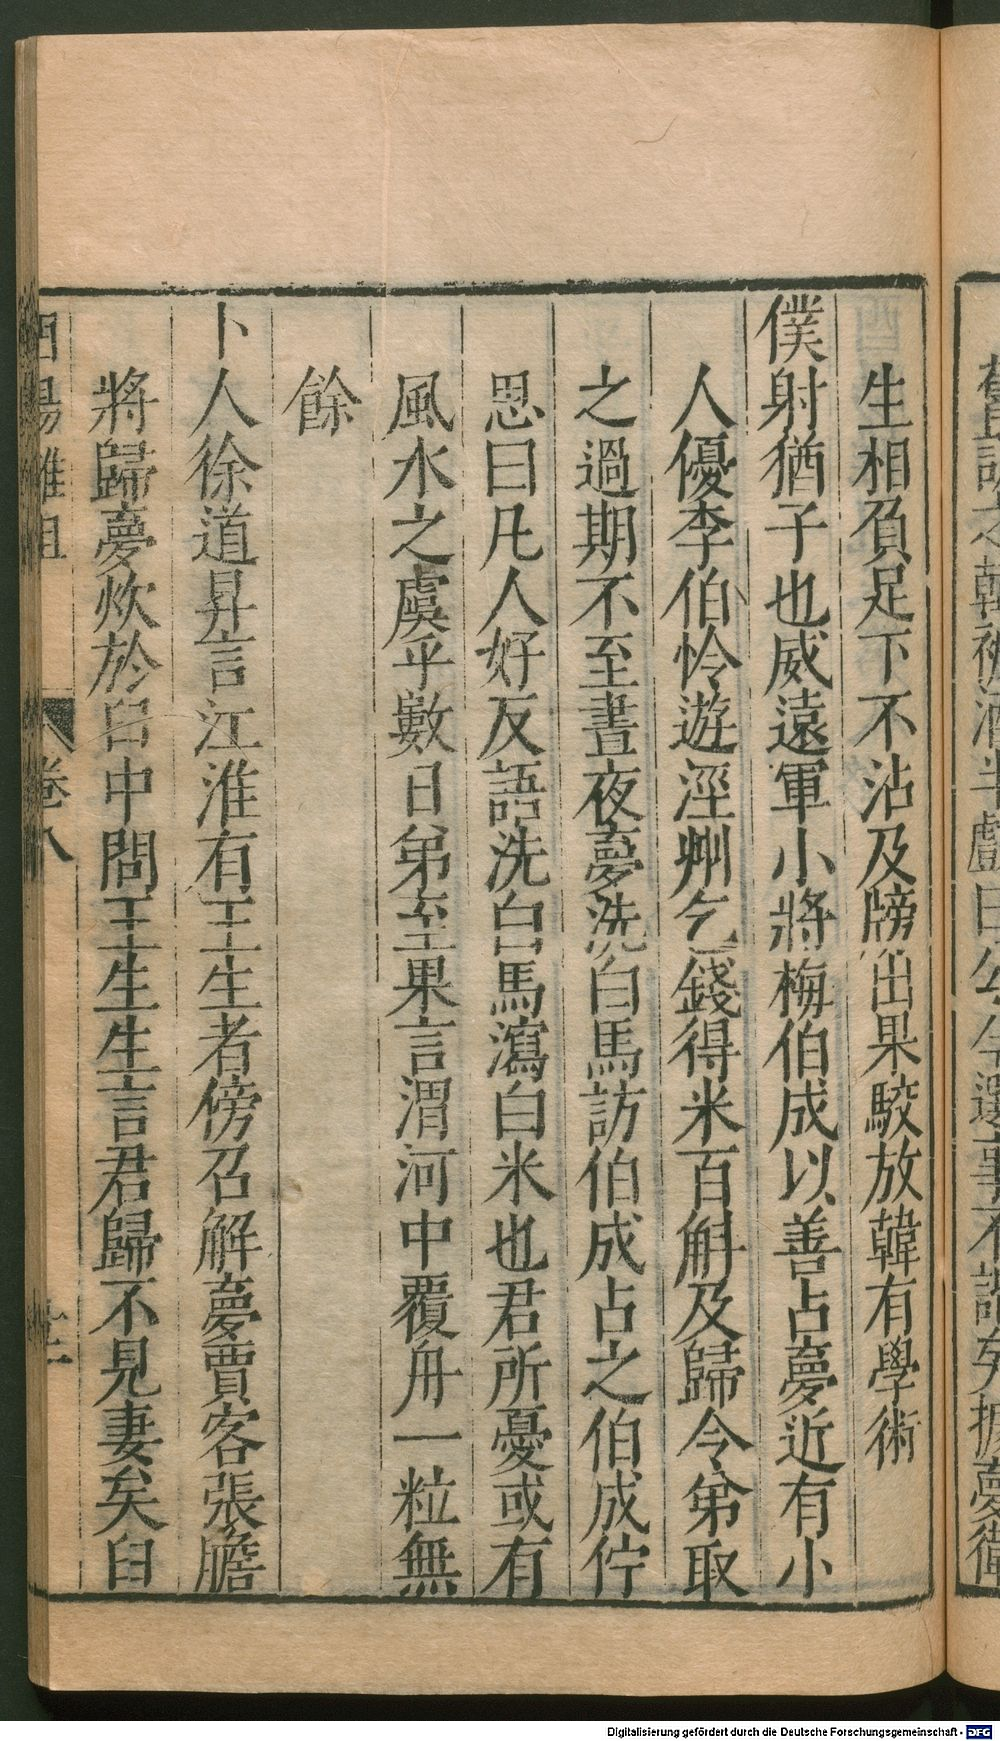 生相負足下不沾及牓出果駮放韓有學術
僕射猶子也威遠軍小將梅伯成以善占夢近有小
人優李伯怜遊涇州乞錢得米百斛及歸令弟取
之過期不至晝夜夢洗白馬訪伯成占之伯成佇
思曰凡人好反語洗白馬瀉白米也君所憂或有
風水之虞乎數日弟至果言渭河中覆舟一粒無
餘
卜人徐道昇言江淮有王生者傍召解夢賈客張膽
將歸夢炊於臼中問王生生言君歸不見妻矣臼
酉陽雜俎 卷八
Digitalisierung gefördert durch die Deutsche Forschungsgemeinschaft - DFG